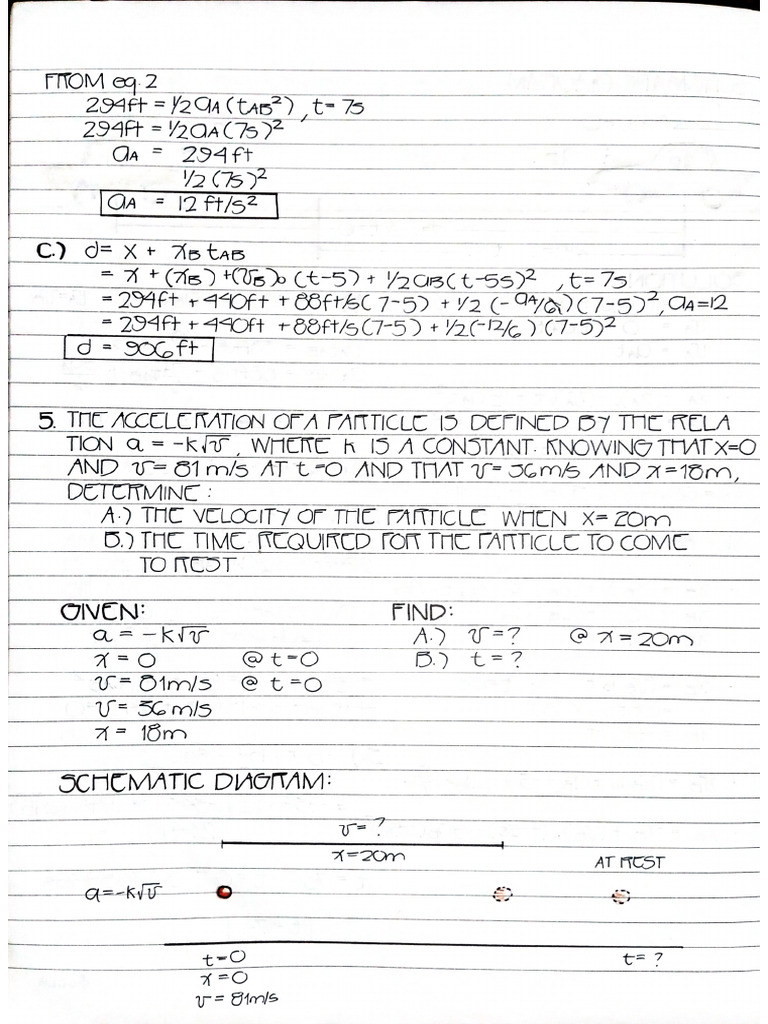 FROM eq. 2
294ft = 1/2 aA (tAB²) , t = 7s
294ft = 1/2 aA (7s)²
aA = 294ft
1/2 (7s)²
aA = 12 ft/s²
C.) d = x + xB tAB
= x + (xB) + (vB)o (t-5) + 1/2 aB (t-5s)² , t = 7s
= 294ft + 440ft + 88ft/s (7-5) + 1/2 (-aA/6) (7-5)², aA = 12
= 294ft + 440ft + 88ft/s (7-5) + 1/2 (-12/6) (7-5)²
d = 906 ft
5. THE ACCELERATION OF A PARTICLE IS DEFINED BY THE RELA
TION a = -k√v, WHERE k IS A CONSTANT. KNOWING THAT x=0
AND v = 81 m/s AT t=0 AND THAT v = 36 m/s AND x = 18m,
DETERMINE :
A.) THE VELOCITY OF THE PARTICLE WHEN x = 20m
B.) THE TIME REQUIRED FOR THE PARTICLE TO COME
TO REST
GIVEN: FIND:
a = -k√v A.) v = ? @ x = 20m
x = 0 @ t = 0 B.) t = ?
v = 81m/s @ t = 0
v = 36 m/s
x = 18m
SCHEMATIC DIAGRAM:
v = ?
x = 20m
AT REST
a = -k√v
t = 0 t = ?
x = 0
v = 81m/s